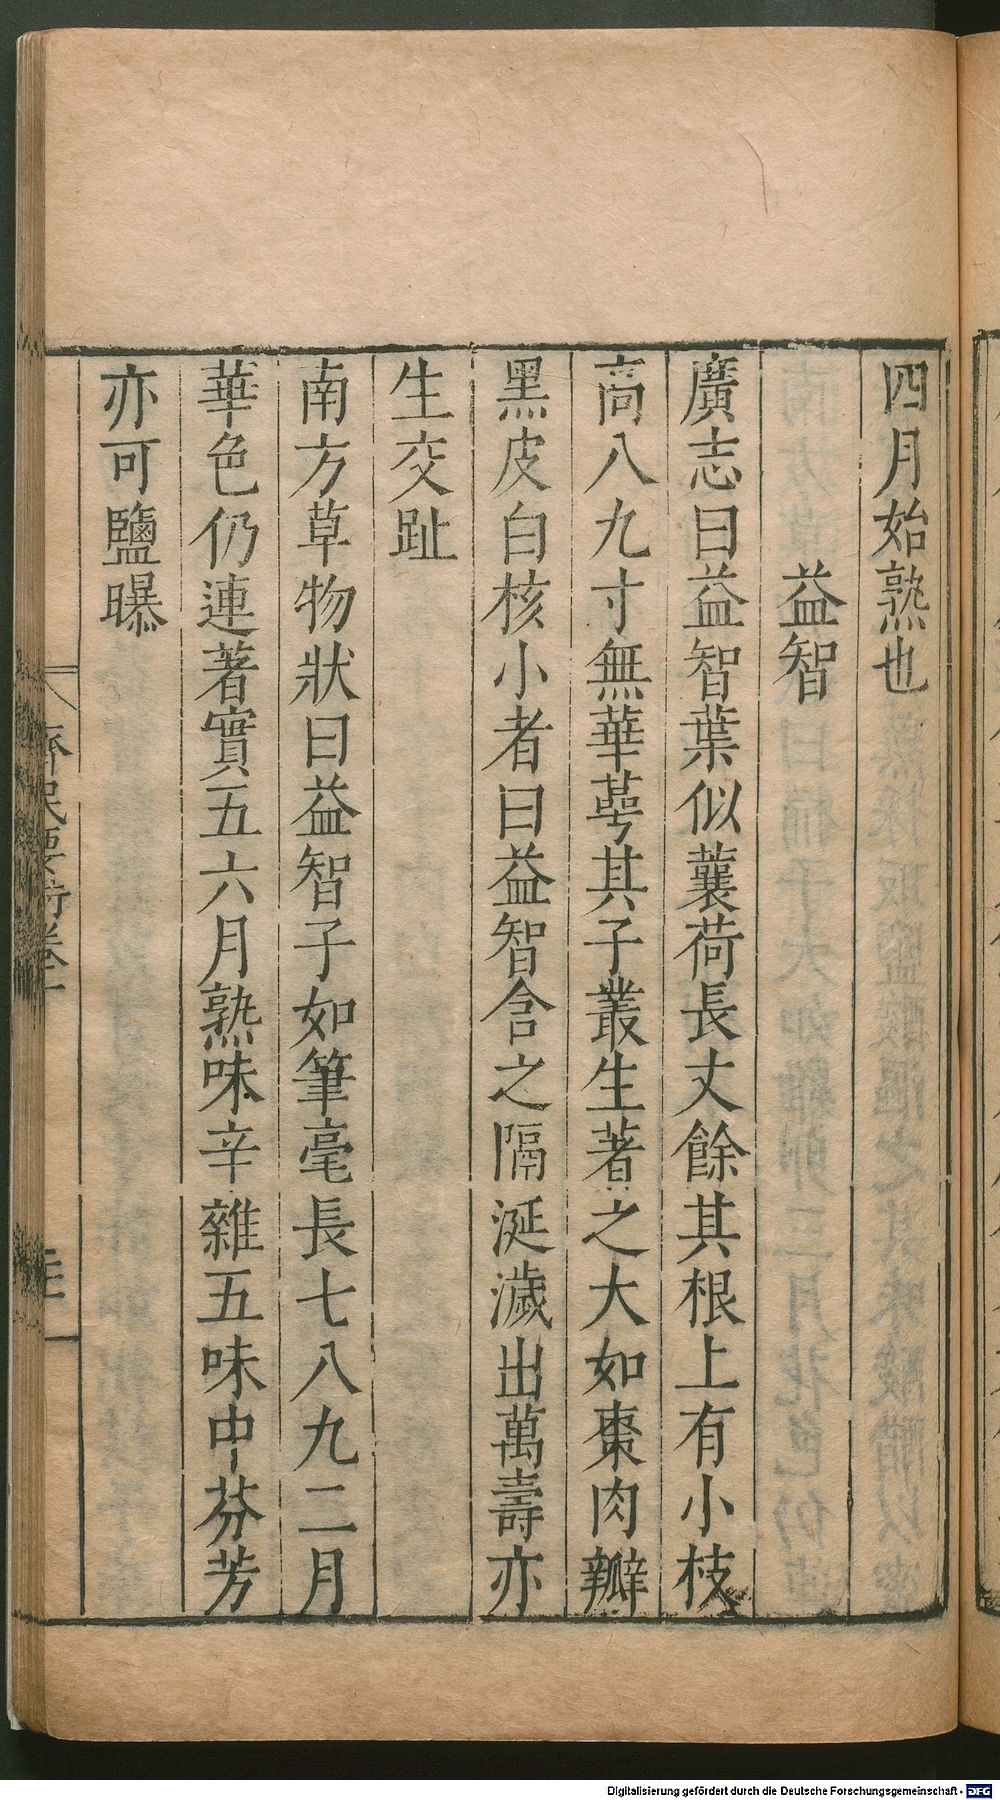 四月始熟也
益智
廣志曰益智葉似蘘荷長丈餘其根上有小枝
高八九寸無華萼其子叢生著之大如棗肉瓣
黑皮白核小者曰益智含之隔涎濊出萬壽亦
生交趾
南方草物狀曰益智子如筆毫長七八九二月
華色仍連著實五六月熟味辛雜五味中芬芳
亦可鹽曝
齊民要術卷十
Digitalisierung gefördert durch die Deutsche Forschungsgemeinschaft - DFG